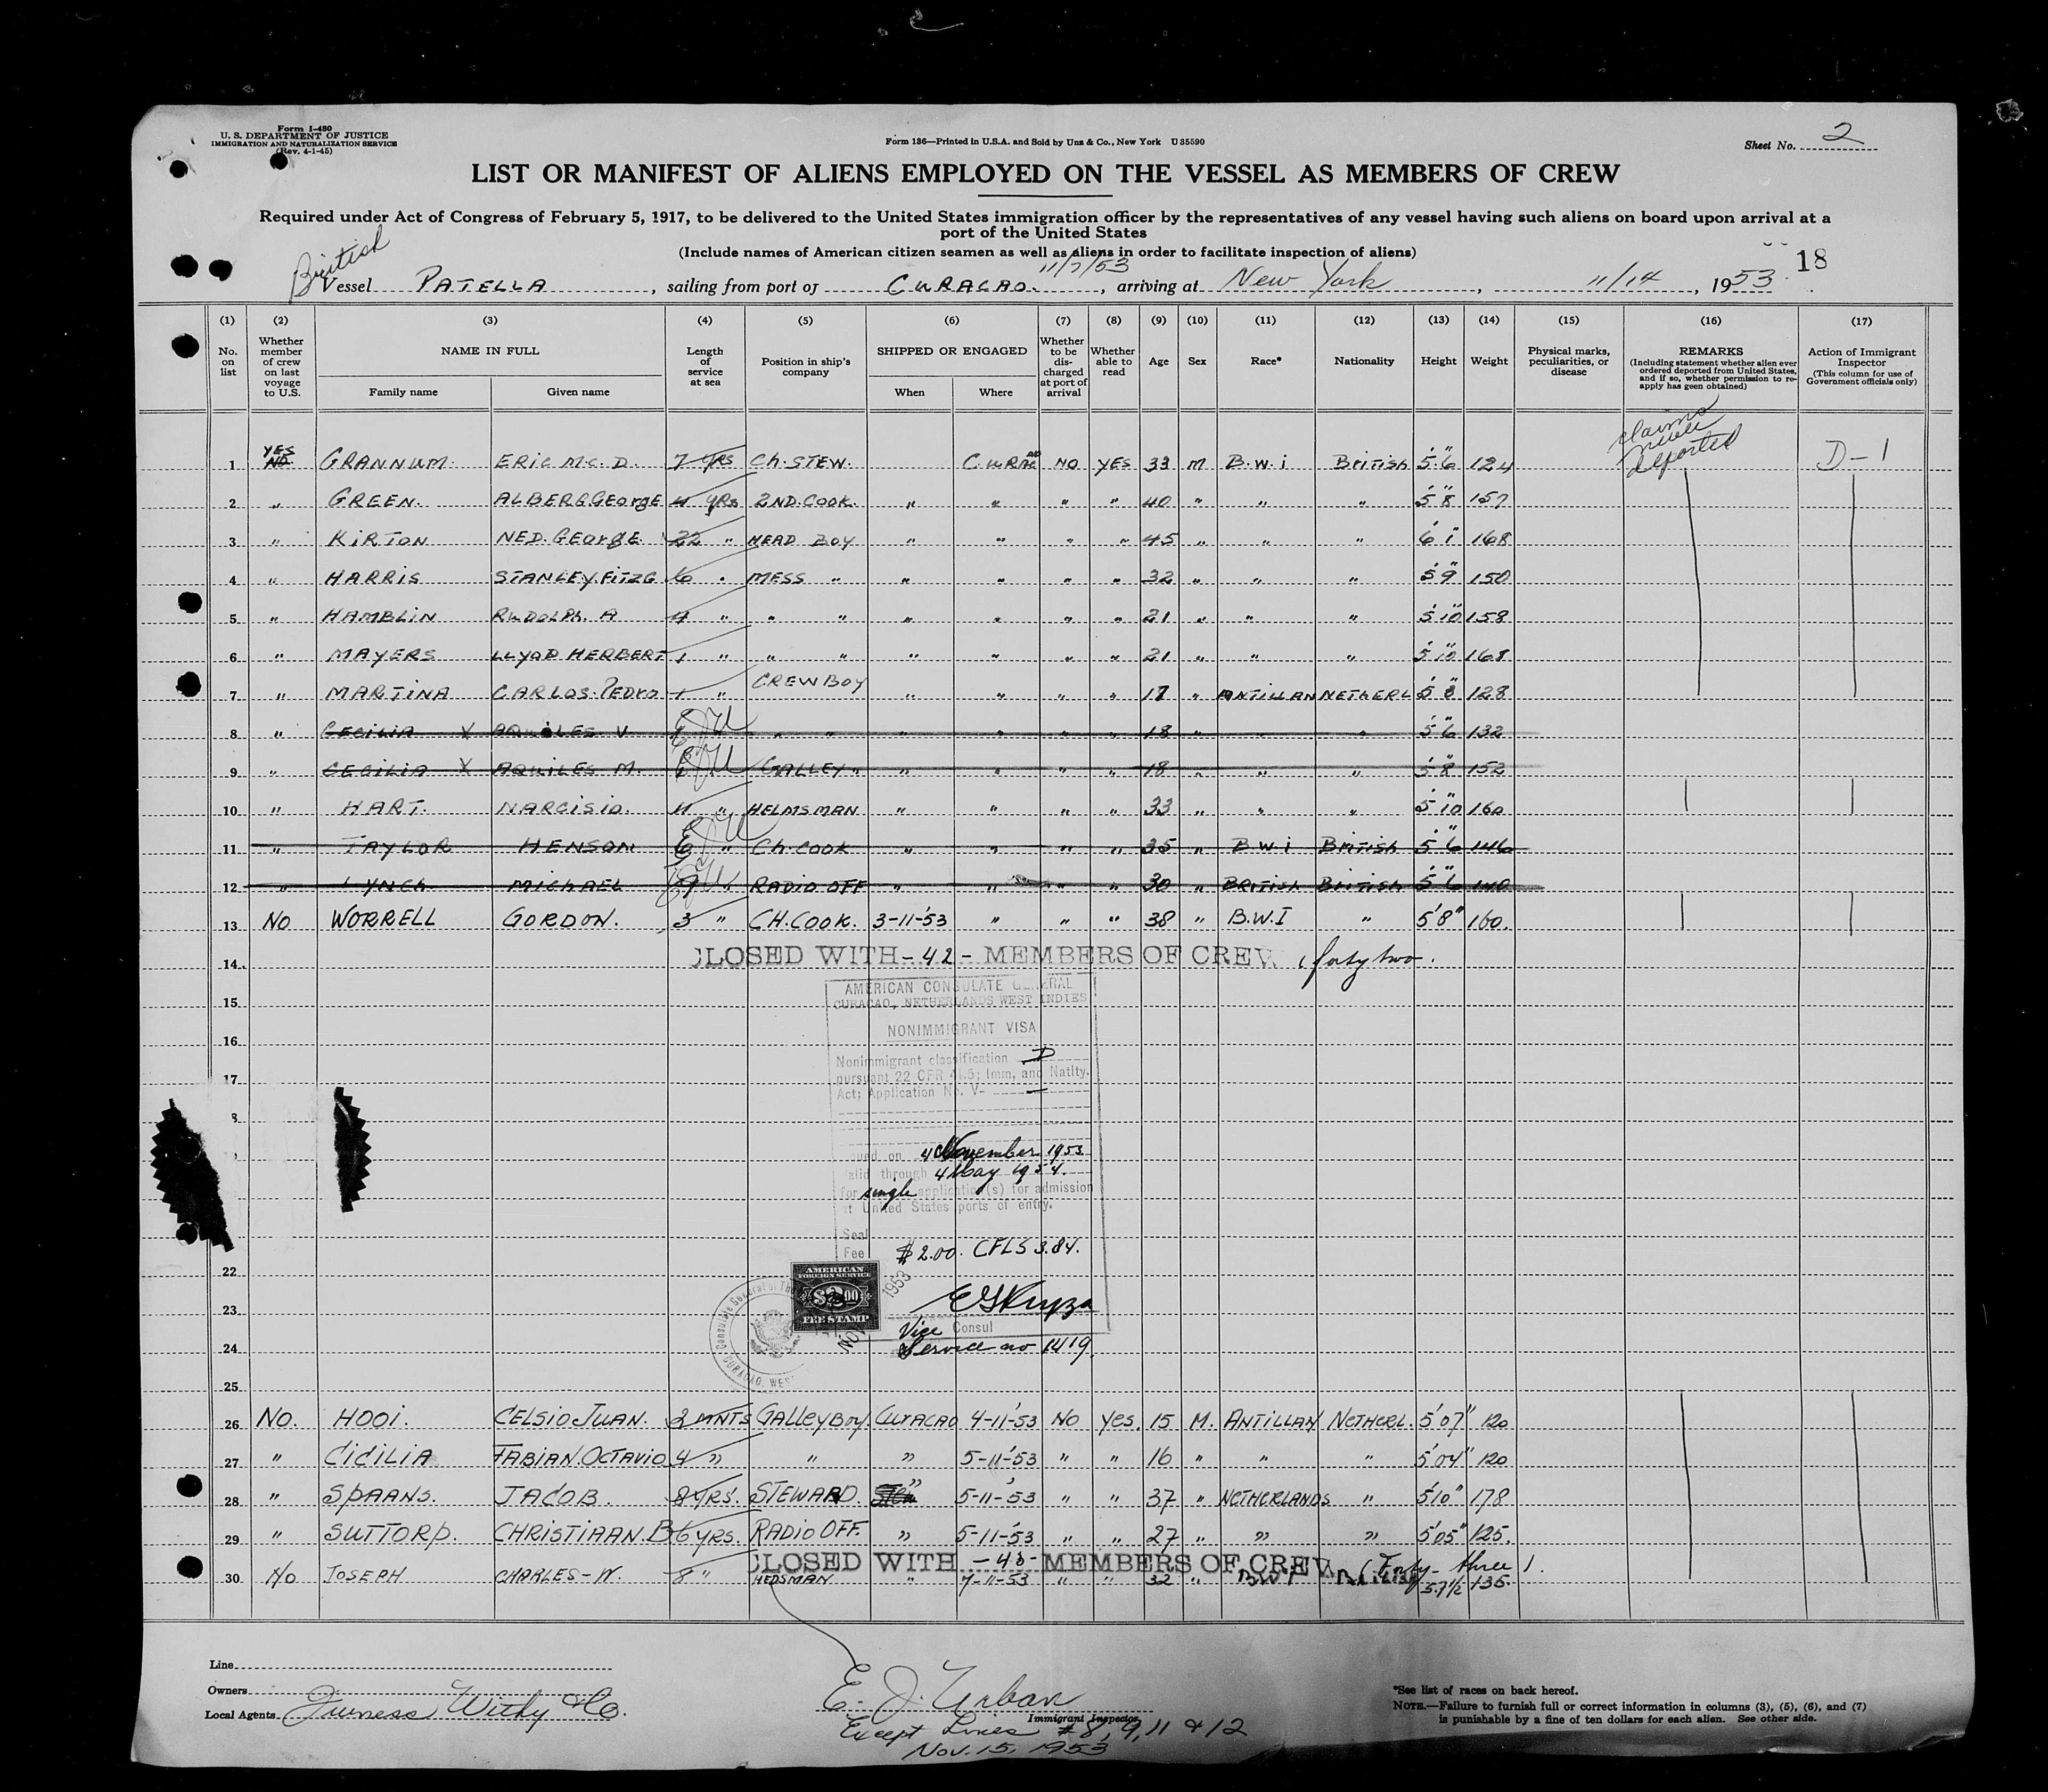 Form I-480
U. S. DEPARTMENT OF JUSTICE
IMMIGRATION AND NATURALIZATION SERVICE
(Rev. 4-1-45)
Form 136—Printed in U.S.A. and Sold by Unz & Co., New York U 35590
Sheet No. 2
LIST OR MANIFEST OF ALIENS EMPLOYED ON THE VESSEL AS MEMBERS OF CREW
Required under Act of Congress of February 5, 1917, to be delivered to the United States immigration officer by the representatives of any vessel having such aliens on board upon arrival at a
port of the United States
(Include names of American citizen seamen as well as aliens in order to facilitate inspection of aliens)
18
British
11/7/53
Vessel PATELLA, sailing from port of CURACAO., arriving at New York, 11/14, 1953
(1) (2) (3) (4) (5) (6) (7) (8) (9) (10) (11) (12) (13) (14) (15) (16) (17)
No. on list
Whether member of crew on last voyage to U.S.
NAME IN FULL
Family name Given name
Length of service at sea
Position in ship's company
SHIPPED OR ENGAGED
When Where
Whether to be discharged at port of arrival
Whether able to read
Age Sex Race* Nationality Height Weight
Physical marks, peculiarities, or disease
REMARKS
(Including statement whether alien ever ordered deported from United States, and if so, whether permission to reapply has geen obtained)
Action of Immigrant Inspector
(This column for use of Government officials only)
claims never deported
1 YES NO GRANNUM. ERIC Mc. D. 7 YRS Ch. STEW. CURACAO NO YES 33 M B.W.i British 5'6" 124 D-1
2 " GREEN. ALBERG GEORGE 4 YRS 2ND. COOK. " " " " 40 " " " 5'8" 157
3 " KIRTON NED. GEORGE 22 " HEAD BOY " " " " 45 " " " 6'1" 168
4 " HARRIS STANLEY. FITZG 6 " MESS " " " " " 32 " " " 5'9" 150
5 " HAMBLIN RUDOLPH. A 4 " " " " " " " 21 " " " 5'10" 158
6 " MAYERS LLYOD HERBERT 1 " " " " " " " 21 " " " 5'10" 168
7 " MARTINA CARLOS. PEDRO 1 " CREW BOY " " " " 17 " ANTILLAN NETHERL 5'8" 128
8 " CECILIA X AQUILES V EJU " " " " " " 18 " " " 5'6" 132
9 " CECILIA X AQUILES M. EJU GALLEY " " " " " 18 " " " 5'8" 152
10 " HART. NARCISIO. 4 " HELMSMAN " " " " 33 " " " 5'10" 160
11 " TAYLOR HENSON EJU " Ch. COOK " " " " 35 " B.W.i British 5'6" 146
12 " LYNCH MICHAEL EJU " RADIO OFF " " " " 30 " BRITISH British 5'6" 140
13 NO WORRELL GORDON. 3 " CH. COOK. 3-11-'53 " " " 38 " B.W.I " 5'8" 160.
14 CLOSED WITH -42- MEMBERS OF CREW (forty two.
15
16
17
AMERICAN CONSULATE GENERAL
CURACAO, NETHERLANDS WEST INDIES
NONIMMIGRANT VISA
Nonimmigrant classification D
pursuant 22 CFR 41.5; Imm. and Natlty.
Act; Application No. V-
Issued on 4 November 1953
Valid through 4 May 1954.
for single application(s) for admission
at United States ports of entry.
Seal
Fee $2.00. CFLS 3.84.
AMERICAN
FOREIGN SERVICE
$2.00
FEE STAMP
NOV 1953
Vice Consul
Service no 1419.
22
23
24
25
26 No. HOOI. CELSIO JUAN. 3 MNTS GALLEY BOY. CURACAO 4-11-'53 NO yes. 15 M. ANTILLAN NETHERL. 5'07" 120
27 " CICILIA FABIAN. OCTAVIO 4 " " " 5-11-'53 " " 16 " " " 5'04" 120
28 " SPAANS. JACOB. 8 YRS. STEWARD. " 5-11-'53 " " 37 " NETHERLANDS " 5'10" 178
29 " SUTTORP. CHRISTIAAN. B 6 YRS. RADIO OFF. " 5-11-'53 " " 27 " " " 5'05" 125.
CLOSED WITH -43- MEMBERS OF CREW (Forty-three).
30 No JOSEPH CHARLES-W. 8 " HEDSMAN " 7-11-53 " " 32 " BWI British 5.7 1/2 135.
Line
Owners
Local Agents Furness Withy & Co.
E. J. Urban
Immigrant Inspector
Except Lines #8, 9, 11 & 12
Nov. 15, 1953
*See list of races on back hereof.
NOTE.—Failure to furnish full or correct information in columns (3), (5), (6), and (7)
is punishable by a fine of ten dollars for each alien. See other side.